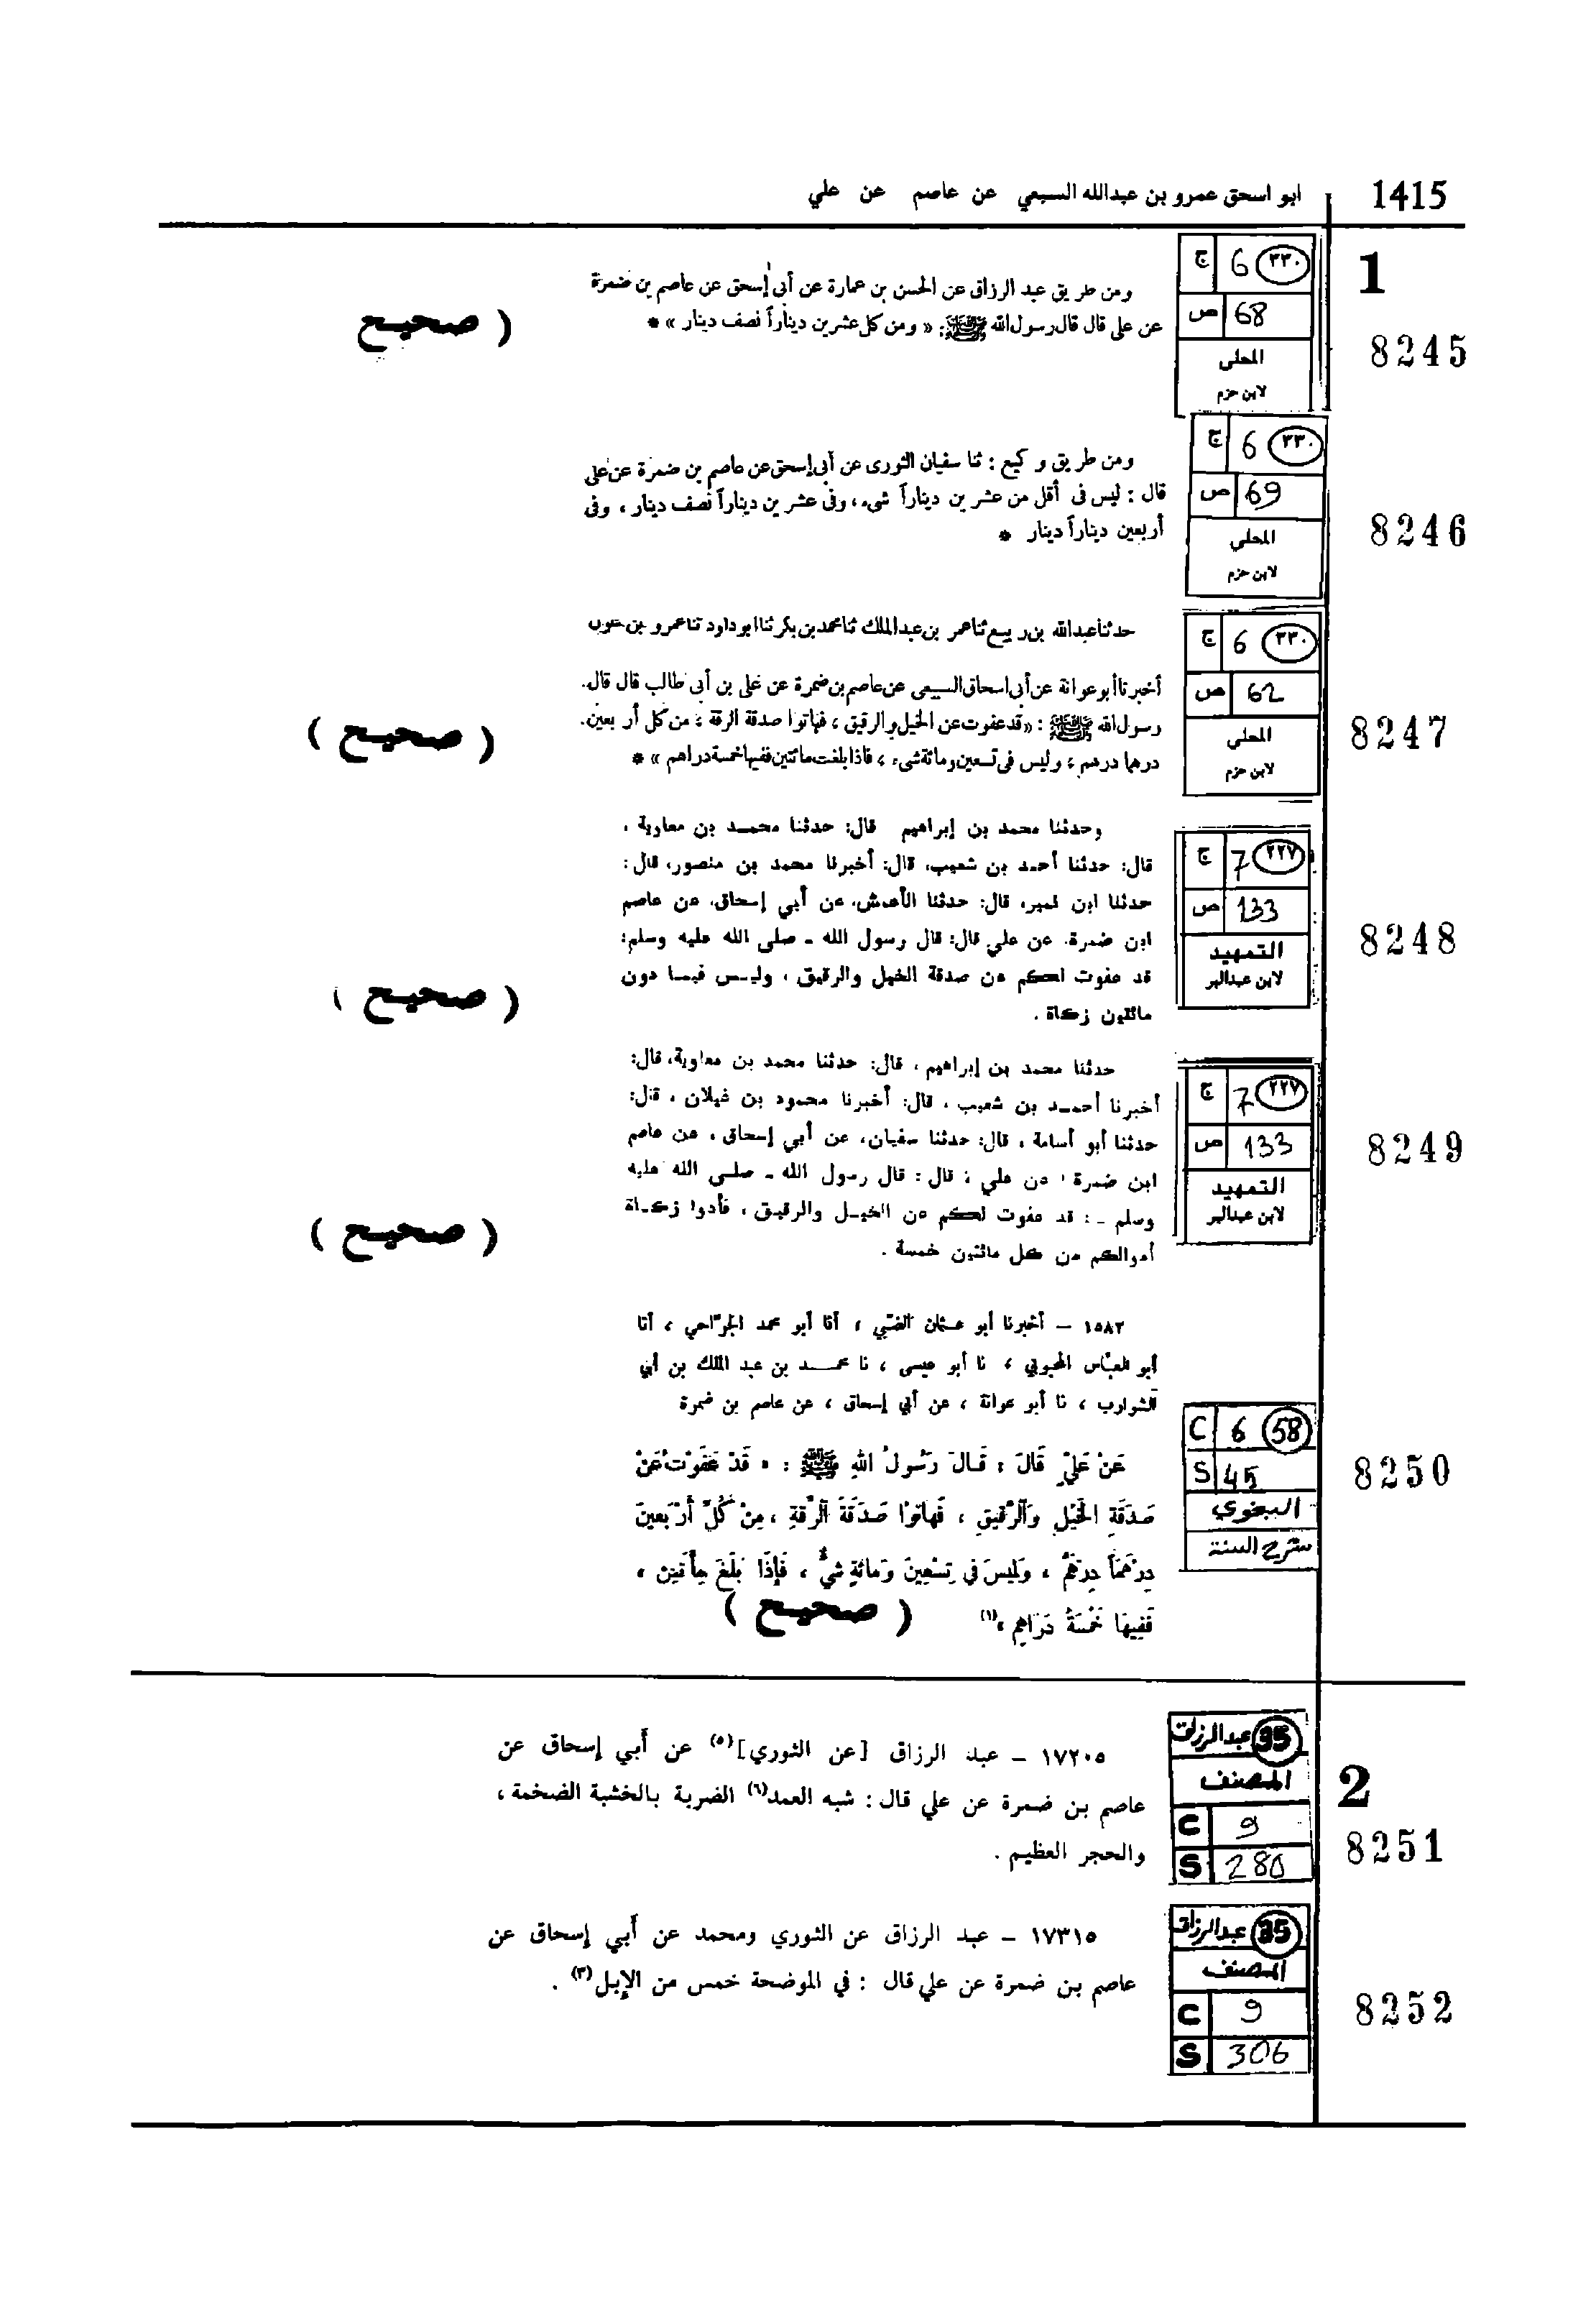 1415 ابو اسحق عمرو بن عبدالله السبيعي عن عاصم عن علي
1
8245
ج 6 ٣٣٠
ص 68
المحلى
لابن حزم
ومن طريق عبد الرزاق عن الحسن بن عمارة عن أبى إسحق عن عاصم بن ضمرة
عن على قال قال رسول الله ﷺ: « ومن كل عشرين ديناراً نصف دينار » *
( صحيح
8246
ج 6 ٣٣٠
ص 69
المحلى
لابن حزم
ومن طريق وكيع : ثنا سفيان الثورى عن أبى إسحق عن عاصم بن ضمرة عن على
قال : ليس فى أقل من عشرين ديناراً شىء ، وفى عشرين ديناراً نصف دينار ، وفى
أربعين ديناراً دينار *
8247
ج 6 ٣٣٠
ص 62
المحلى
لابن حزم
حدثنا عبدالله بن ربيع ثنا عمر بن عبد الملك ثنا محمد بن بكر ثنا ابو داود ثنا عمرو بن عون
أخبرنا أبو عوانة عن أبى اسحاق السبيعى عن عاصم بن ضمرة عن على بن أبى طالب قال قال
رسول الله ﷺ : « قد عفوت عن الخيل والرقيق ، فهاتوا صدقة الرقة ؛ من كل أربعين
درهما درهم ؛ وليس فى تسعين ومائة شىء ؛ فاذا بلغت مائتين ففيها خمسة دراهم » *
( صحيح )
8248
ج 7 ٢٢٧
ص 133
التمهيد
لابن عبدالبر
وحدثنا محمد بن إبراهيم قال: حدثنا محمد بن معاوية ،
قال: حدثنا أحمد بن شعيب، قال: أخبرنا محمد بن منصور، قال:
حدثنا ابن نمير، قال: حدثنا الأعمش، عن أبي إسحاق، عن عاصم
ابن ضمرة، عن علي قال: قال رسول الله - صلى الله عليه وسلم:
قد عفوت لكم عن صدقة الخيل والرقيق ، وليس فيما دون
مائتين زكاة .
( صحيح )
8249
ج 7 ٢٢٧
ص 133
التمهيد
لابن عبدالبر
حدثنا محمد بن إبراهيم ، قال: حدثنا محمد بن معاوية، قال:
أخبرنا أحمد بن شعيب ، قال: أخبرنا محمود بن غيلان ، قال:
حدثنا أبو أسامة ، قال: حدثنا سفيان، عن أبي إسحاق ، عن عاصم
ابن ضمرة ، عن علي ، قال : قال رسول الله - صلى الله عليه
وسلم - : قد عفوت لكم عن الخيل والرقيق ، فأدوا زكاة
أموالكم من كل مائتين خمسة .
( صحيح )
8250
C 6 58
S 45
البغوي
شرح السنة
١٥٨٢ – أخبرنا أبو عثمان الضبّي ، أنا أبو محمد الجرّاحي ، أنا
أبو العبّاس المحبوبي ، نا أبو عيسى ، نا محمد بن عبد الملك بن أبي
الشوارب ، نا أبو عوانة ، عن أبي إسحاق ، عن عاصم بن ضمرة
عَنْ عَلِيٍّ قَالَ : قَالَ رَسُولُ اللهِ ﷺ : « قَدْ عَفَوْتُ عَنْ
صَدَقَةِ الخَيْلِ وَالرَّقِيقِ ، فَهَاتُوا صَدَقَةَ الرِّقَةِ ، مِنْ كُلِّ أَرْبَعِينَ
دِرْهَمَاً دِرْهَمٌ ، وَلَيْسَ في تِسْعِينَ وَمَائَةٍ شيْءٌ ، فَإِذَا بَلَغَ مِأَتَيْنِ ،
فَفِيهَا خَمْسَةُ دَرَاهِمِ »(١)
( صحيح )
2
8251
عبدالرزاق 35
المصنف
C 9
S 280
١٧٢٠٥ – عبد الرزاق [عن الثوري](٥) عن أبي إسحاق عن
عاصم بن ضمرة عن علي قال : شبه العمد(٦) الضربة بالخشبة الضخمة ،
والحجر العظيم .
8252
عبدالرزاق 35
المصنف
C 9
S 306
١٧٣١٥ – عبد الرزاق عن الثوري ومحمد عن أبي إسحاق عن
عاصم بن ضمرة عن علي قال : في الموضحة خمس من الإبل(٣) .